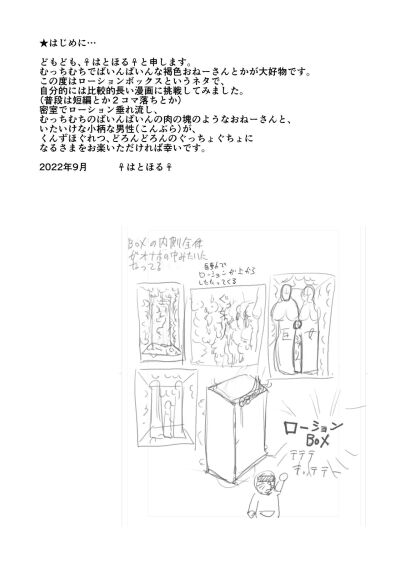 ★はじめに…
どもども、♀はとほる♀と申します。
むっちむちでばいんばいんな褐色おねーさんとかが大好物です。
この度はローションボックスというネタで、
自分的には比較的長い漫画に挑戦してみました。
(普段は短編とか２コマ落ちとか)
密室でローション垂れ流し、
むっちむちのばいんばいんの肉の塊のようなおねーさんと、
いたいけな小柄な男性(こんぶら)が、
くんずほぐれつ、どろんどろんのぐっちょぐちょに
なるさまをお楽いただければ幸いです。
2022年9月　　♀はとほる♀
BOXの内側全体
がオナホの中みたいに
なってる
ローションが上から
したたってくる
ローション
BOX
テテテ